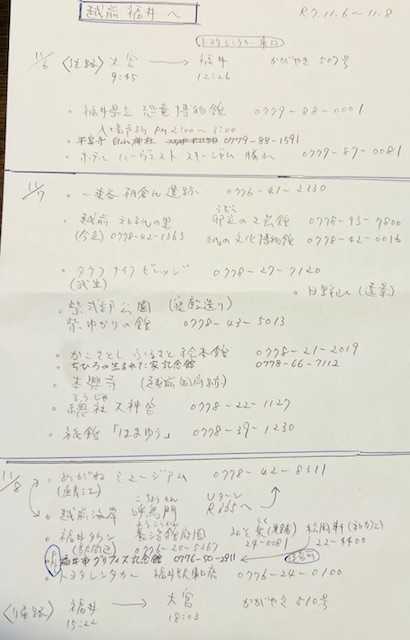 越前 福井 へ
R7.11.6 〜 11.8
トヨタレンタカー 東口
11/6 〈往路〉 大宮 → 福井 かがやき 507号
9:45 12:26
・福井県立 恐竜博物館 0779-88-0001
入場予約 PM 2:00〜3:00
・平泉寺 白山神社 0779-88-1591
・ホテル ハーヴェスト スキージャム 勝山 0779-87-0081
11/7 ・一乗谷 朝倉氏遺跡 0776-41-2330
・越前 和紙の里 卯立の工芸館 0778-43-7800
(今立) 0778-42-1363 紙の文化博物館 0778-42-0016
・タケフナイフビレッジ 0778-27-7120
(武生)
・日野山 (遠景)
・紫式部公園 (寝殿造り)
紫ゆかりの館 0778-43-5013
・かこさとし ふるさと絵本館 0778-21-2019
・ちひろの生まれた家記念館 0778-66-7112
・總社大神宮 0778-22-1127
・旅館「はまゆう」 0778-39-1230
11/8 ・めがねミュージアム 0778-42-8311
(鯖江)
・越前海岸 呼鳥門 Uターン
・福井タウン 養浩館庭園
0776-20-5367
24-0081 22-4400
福井市グリフィス記念館 0776-50-2911
・トヨタレンタカー 福井駅東口店 0776-24-0100
〈復路〉 福井 → 大宮 かがやき 510号
15:22 18:03